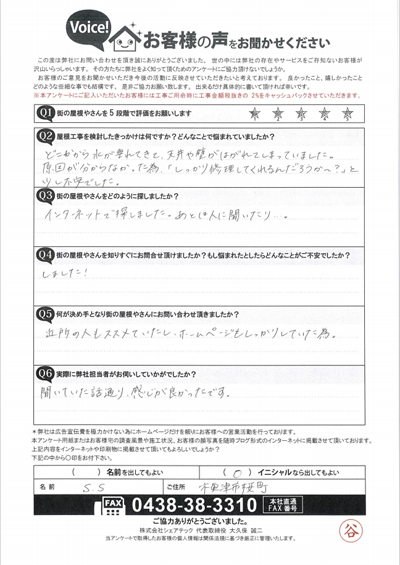 Voice! お客様の声をお聞かせください
この度は弊社にお問い合わせを頂き誠にありがとうございました。世の中には弊社の存在やサービスをご存知ないお客様が
沢山いらっしゃいます。その方たちに弊社をよく知って頂くためのアンケートにご協力頂けないでしょうか。
お客様のご意見をお聞かせいただき今後の活動に反映させていただきたいと考えております。良かったこと、嬉しかったこと
どのような些細な事でも結構です。是非ご協力お願い致します。出来るだけ具体的に書いて頂ければ幸いです。
※本アンケートにご記入いただいたお客様には工事ご用命時に工事金額税抜きの2%をキャッシュバックさせていただきます。
Q1 街の屋根やさんを5段階で評価をお願いします
Q2 屋根工事を検討したきっかけは何ですか？どんなことで悩まれていましたか？
どこからか水が垂れてきて、天井や壁がはがれてしまっていました。
原因が分からなかった為、「しっかり修理してくれるんだろうか〜？」と
少し不安でした。
Q3 街の屋根やさんをどのように探しましたか？
インターネットで探しました。あとは人に聞いたり…。
Q4 街の屋根やさんを知りすぐにお問合せ頂けましたか？もし悩まれたとしたらどんなことがご不安でしたか？
しました！
Q5 何が決め手となり街の屋根やさんにお問い合わせ頂きましたか？
近所の人もススメていたし、ホームページもしっかりしていた為。
Q6 実際に弊社担当者がお伺いしていかがでしたか？
聞いていた話通り、感じが良かったです。
＊弊社は広告宣伝費を極力かけない為にホームページだけを頼りにお客様への営業活動を行っております。
本アンケート用紙またはお客様宅の調査風景や施工状況、お客様の顔写真を随時ブログ形式のインターネットに掲載させて頂いております。
上記内容をインターネットや印刷物に掲載させて頂いてもよろしいでしょうか？
下記の中から〇印をお付下さい。
（ ）名前を出してもよい （〇）イニシャルなら出してもよい
名前 S.S ご住所 木更津市桜町
FAX 0438-38-3310 本社直通 FAX番号
ご協力ありがとうございました。
株式会社シェアテック 代表取締役 大久保 誠二
当アンケートで取得したお客様の個人情報は関係法規に基づき厳正に管理いたします。
谷